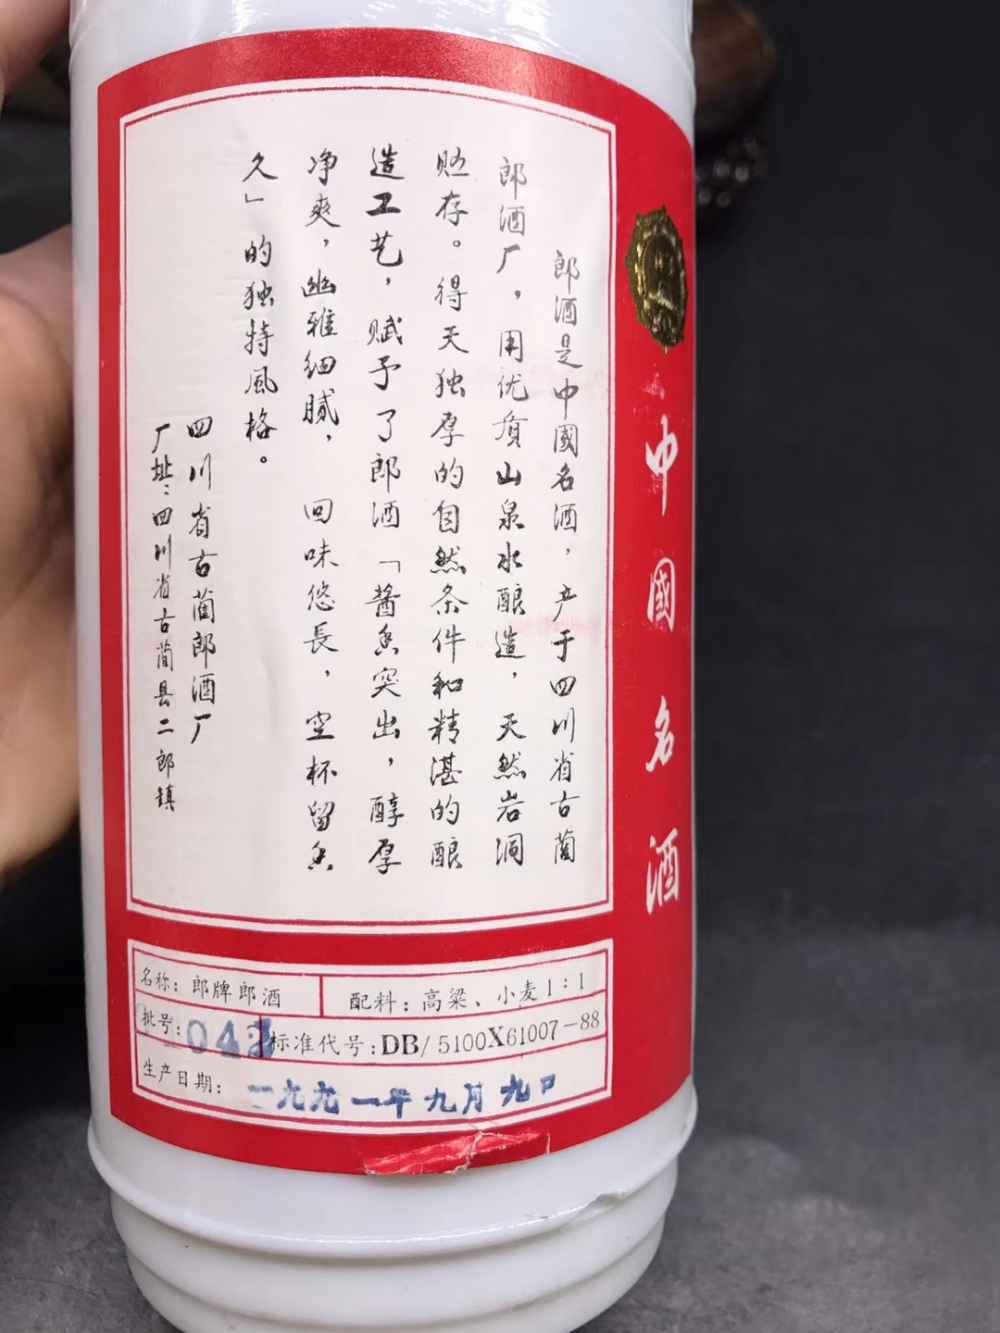 中國名酒
郎酒是中國名酒，产于四川省古蔺
郎酒厂，用优质山泉水酿造，天然岩洞
贮存。得天独厚的自然条件和精湛的酿
造工艺，赋予了郎酒「酱香突出，醇厚
净爽，幽雅细腻，回味悠長，空杯留香
久」的独特風格。
四川省古蔺郎酒厂
厂址：四川省古蔺县二郎镇
名称：郎牌郎酒
配料：高粱、小麦1：1
批号：
标准代号：DB/5100X61007-88
生产日期：一九九一年九月九日